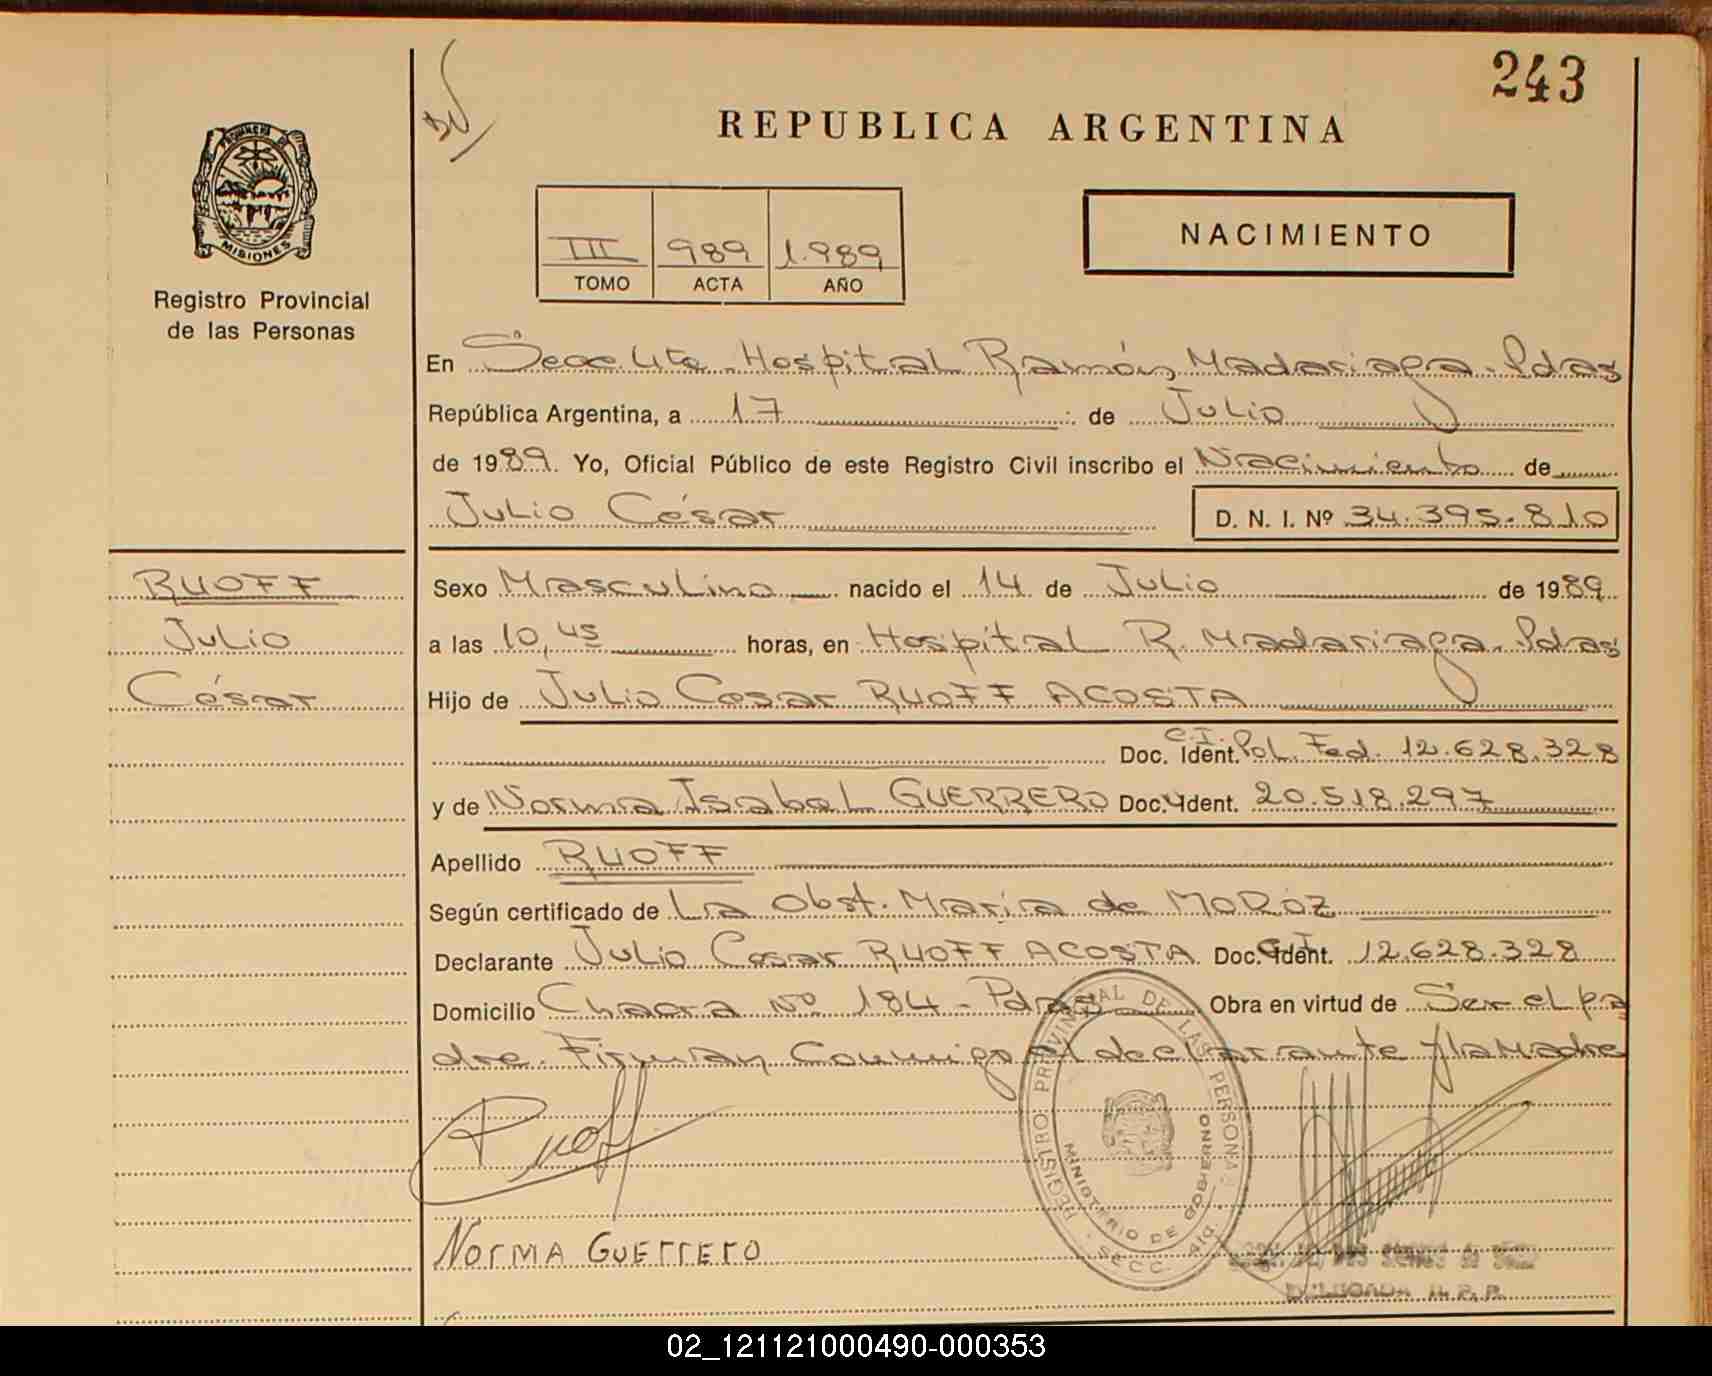 243
REPUBLICA ARGENTINA
PROVINCIA DE
MISIONES
Registro Provincial
de las Personas
III 989 1.989
TOMO ACTA AÑO
NACIMIENTO
En Secc. Hospital Ramón Madariaga. Pdas
República Argentina, a 17 de Julio
de 1989. Yo, Oficial Público de este Registro Civil inscribo el Nacimiento de
Julio César D. N. I. Nº 34.395.810
RUOFF
Julio
César
Sexo Masculino nacido el 14 de Julio de 1989
a las 10,45 horas, en Hospital R. Madariaga. Pdas
Hijo de Julio Cesar RUOFF ACOSTA
Doc. Ident. C.I. Pol. Fed. 12.628.328
y de Norma Isabel GUERRERO Doc. Ident. 20.518.297
Apellido RUOFF
Según certificado de La Obst. María de MOROZ
Declarante Julio Cesar RUOFF ACOSTA Doc. Ident. C.I. 12.628.328
Domicilio Chacra Nº 184 - Pdas Obra en virtud de Ser el pa
dre. Firman Conmigo el declarante y la Madre
Ruoff
NORMA GUERRERO
REGISTRO PROVINCIAL DE LAS PERSONAS
MINISTERIO DE GOBIERNO
SECC.
DELEGADA R. P. P.
02_121121000490-000353